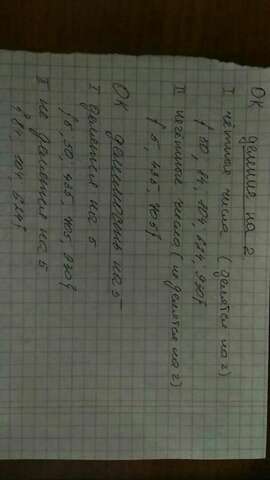 ОК деление на 2
I чётные числа (делятся на 2)
{ 50, 84, 104, 624, 930}
II нечётные числа (не делятся на 2)
{ 5, 435, 705}
ОК делимость на 5
I делятся на 5
{5, 50, 435, 705, 930}
II не делятся на 5
{84, 104, 624}